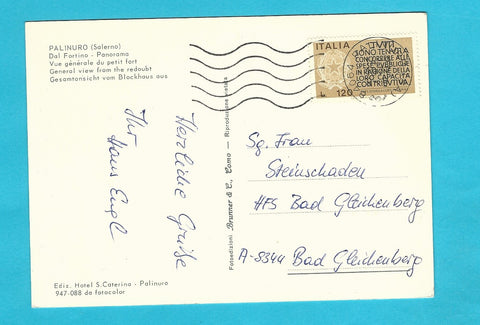 PALINURO (Salerno)
Dal Fortino - Panorama
Vue générale du petit fort
General view from the redoubt
Gesamtansicht vom Blockhaus aus
Herzliche Grüße
Ihr
Hans Engl
Ediz. Hotel S. Caterina - Palinuro
947-088 da fotocolor
Fotoedizioni Brunner & C., Como - Riproduzione vietata
ITALIA
TUTTI
SONO TENUTI A
CONCORRERE ALLE
SPESE PUBBLICHE
IN RAGIONE DELLA
LORO CAPACITÀ
CONTRIBUTIVA
L. 120
Sg. Frau
Steinschaden
HFS Bad Gleichenberg
A-8344 Bad Gleichenberg